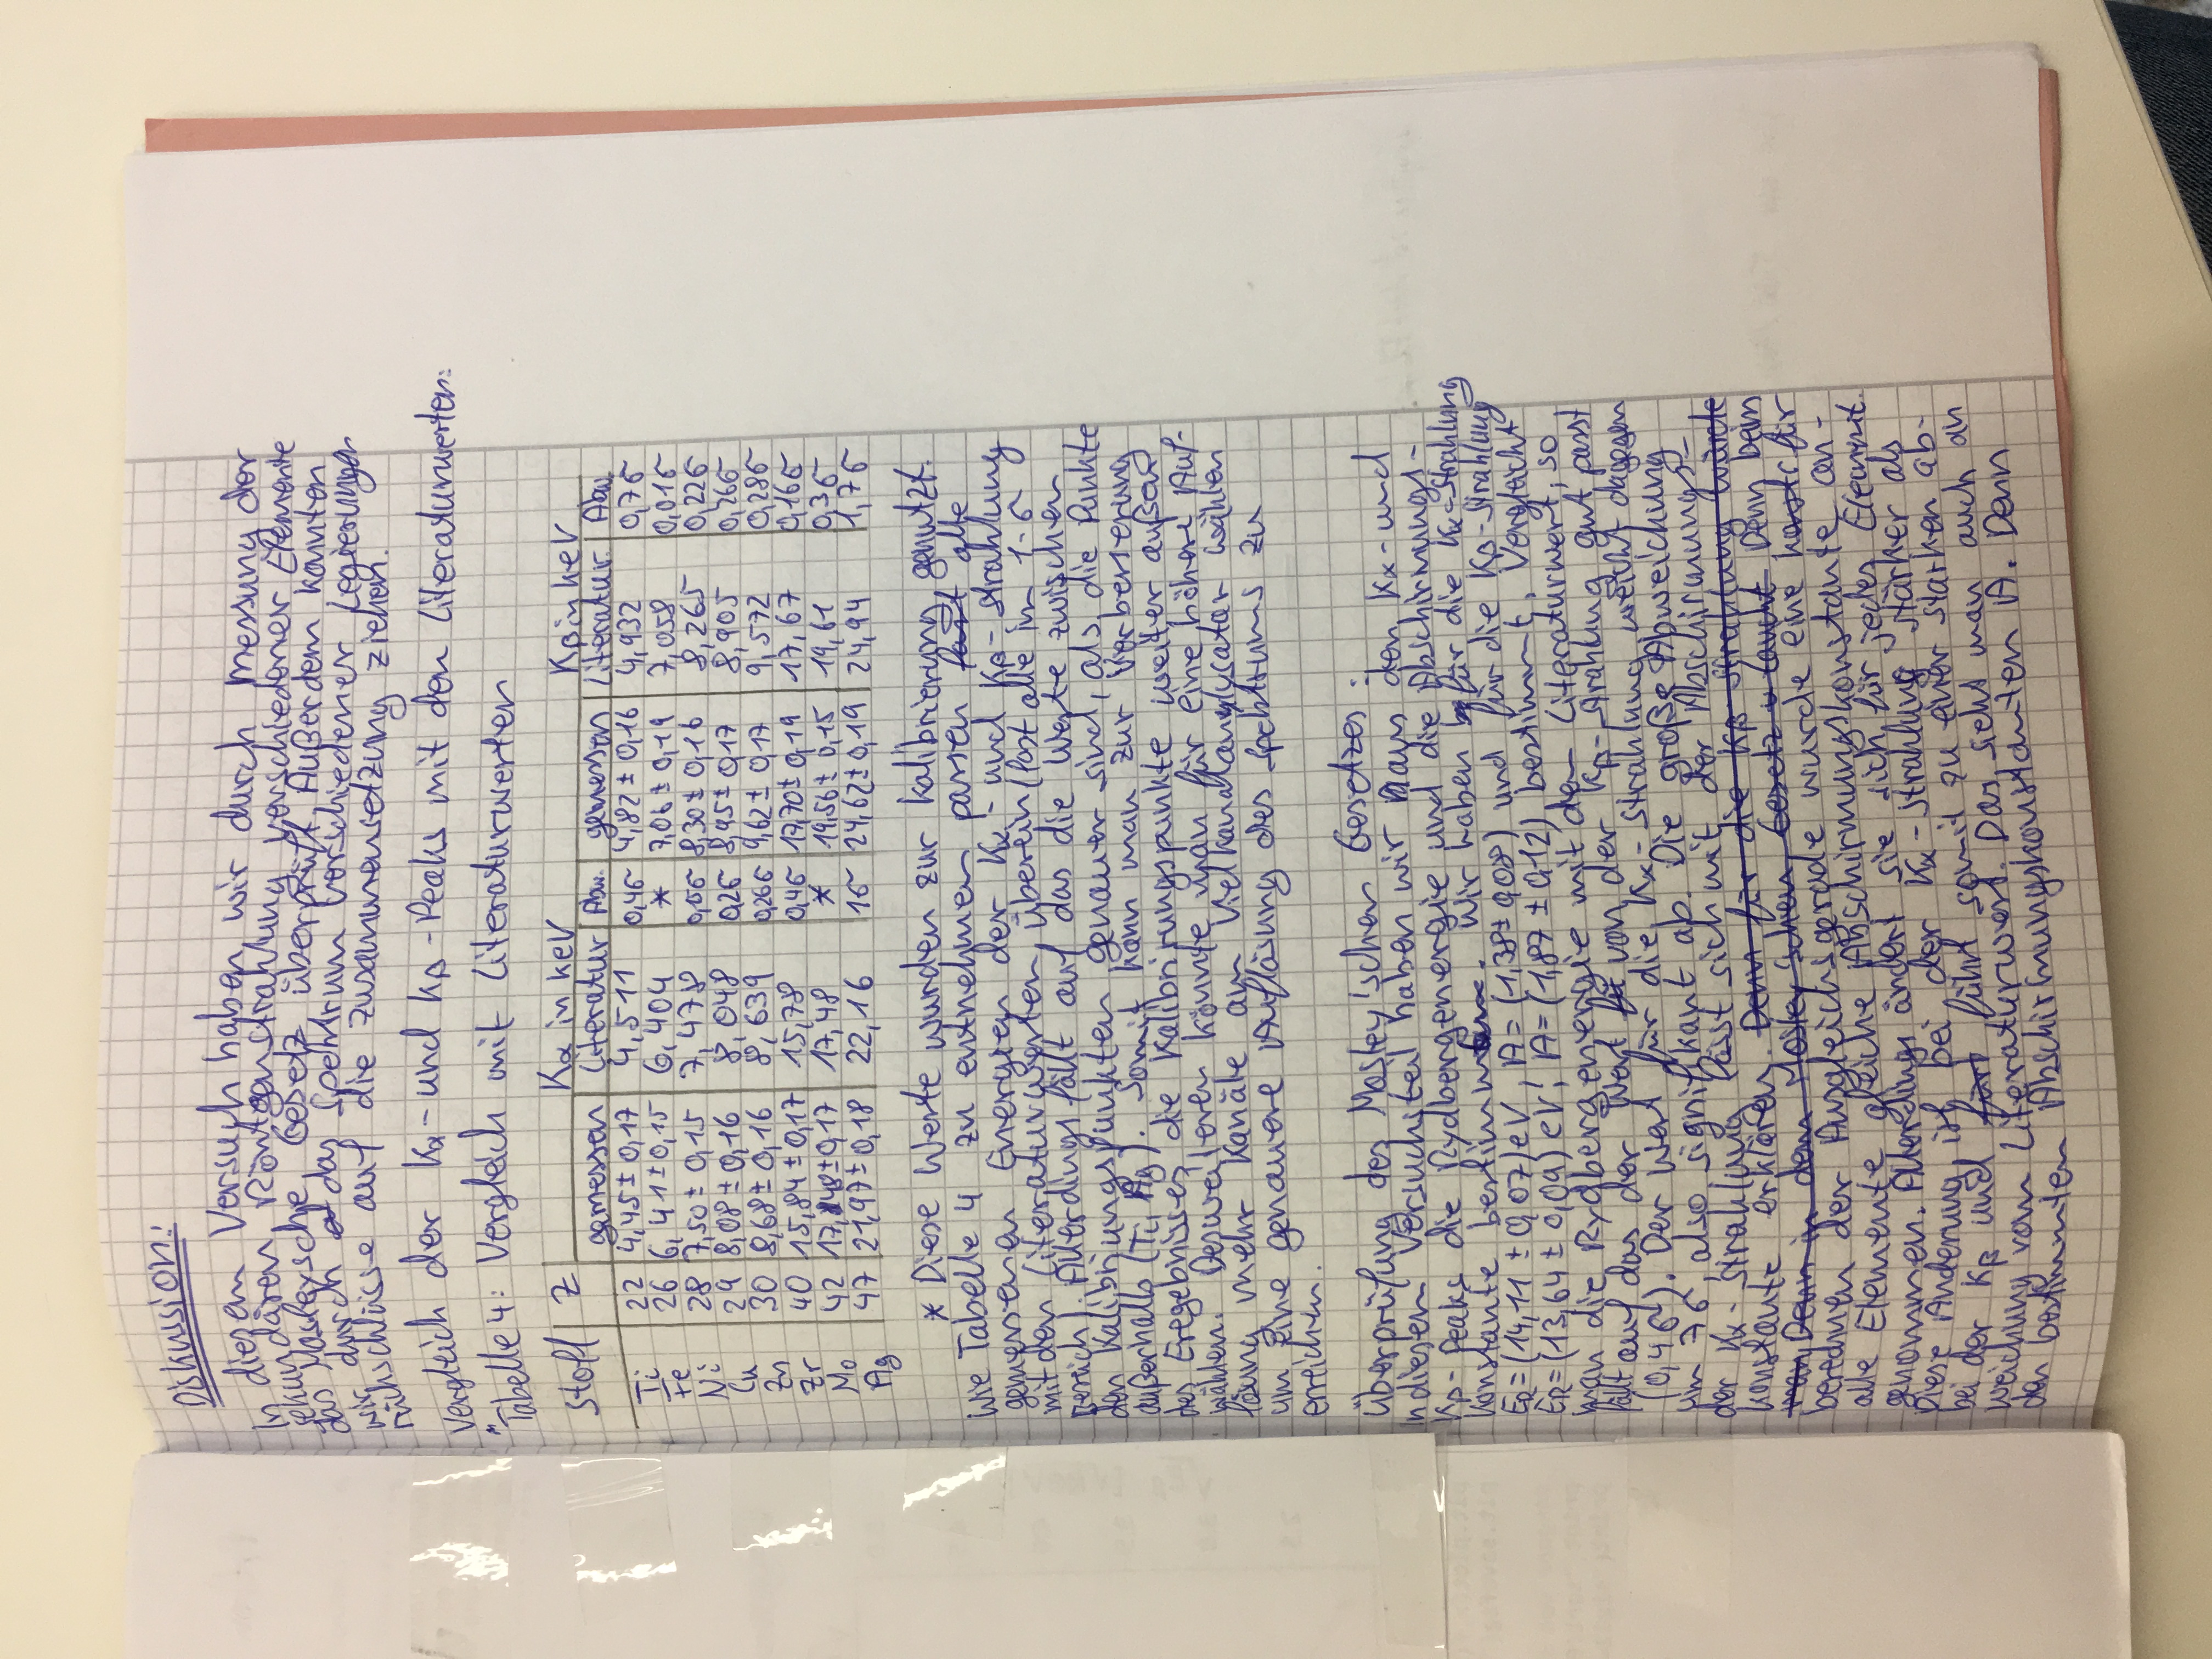 Diskussion:
In diesem Versuch haben wir durch Messung der
sekundären Röntgenstrahlung verschiedener Elemente
das Mosleysche Gesetz überprüft. Außerdem konnten
wir durch das Spektrum verschiedener Legierungen
rückschlüsse auf die Zusammensetzung ziehen.
Vergleich der Kα- und Kβ-Peaks mit den Literaturwerten:
Tabelle 4: Vergleich mit Literaturwerten
Stoff Z Kα in keV Kβ in keV
gemessen Literatur Abw. gemessen Literatur Abw.
Ti 22 4,45 ± 0,17 4,511 0,4σ 4,82 ± 0,16 4,932 0,7σ
Fe 26 6,41 ± 0,15 6,404 * 7,06 ± 0,19 7,058 0,01σ
Ni 28 7,50 ± 0,15 7,478 8,30 ± 0,16 8,265 0,22σ
Cu 29 8,08 ± 0,16 8,048 0,2σ 8,95 ± 0,17 8,905 0,26σ
Zn 30 8,68 ± 0,16 8,639 0,26σ 9,62 ± 0,17 9,572 0,28σ
Zr 40 15,84 ± 0,17 15,78 0,4σ 17,70 ± 0,19 17,67 0,16σ
Mo 42 17,48 ± 0,17 17,48 * 19,56 ± 0,15 19,61 0,3σ
Ag 47 21,97 ± 0,18 22,16 1σ 24,62 ± 0,19 24,94 1,7σ
* Diese Werte wurden zur Kalibrierung genutzt.
Wie Tabelle 4 zu entnehmen passen fast alle
gemessenen Energien der Kα- und Kβ-Strahlung
mit den Literaturwerten überein (fast alle im 1-σ
Bereich). Allerdings fällt auf das die Werte zwischen
den Kalibriungspunkten genauer sind, als die Punkte
außerhalb (Ti, Ag). Somit kann man zur Verbesserung
des Eregebnisses die Kalibrirungspunkte weiter außen
wählen. Desweiteren könnte man für eine höhere Auf-
lösung mehr Kanäle am Vielkanalanalysator wählen
um eine genauere Auflösung des Spektrums zu
erreichen.
Überprüfung des Mosley'schen Gesetzes:
In diesem Versuchsteil haben wir aus den Kα- und
Kβ-Peaks die Rydbergenergie und die Abschirmungs-
konstante bestimmt. Wir haben für die Kα-Strahlung
ER=(14,11 ± 0,07)eV, A=(1,38 ± 0,08) und für die Kβ-Strahlung
ER=(13,64 ± 0,09) eV; A=(1,87 ± 0,12) bestimmt. Vergleicht
man die Rydbergenergie mit dem Literaturwert, so
fällt auf das der Wert von der Kβ-Strahlung gut passt
(0,4σ). Der Wert für die Kα-Strahlung weicht dagegen
um 7σ, also signifikant ab. Die große Abweichung
der Kα-Strahlung lässt sich mit der Abschirmungs-
konstante erklären. Denn für die Kβ Strahlung würde
man Denn in dem Mosley'schen Gesetz taucht Denn beim
berechnen der Ausgleichsgerade wurde eine für
alle Elemente gleiche Abschirmungskonstante an-
genommen. Allerdings ändert sie sich für jedes Element.
Diese Änderung ist bei der Kα-Strahlung stärker als
bei der Kβ und führt somit zu einer starken ab-
weichung vom Literaturwert. Das sieht man auch an
den bestimmten Abschirmungskonstanten A. Denn